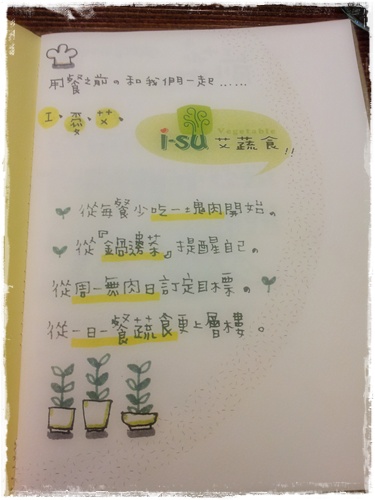 用餐之前，和我們一起……
I、愛、艹、
Vegetable
i-su 艾蔬食!!
從每餐少吃一塊肉開始。
從『鍋邊菜』提醒自己。
從周一無肉日訂定目標。
從一日一餐蔬食更上層樓。